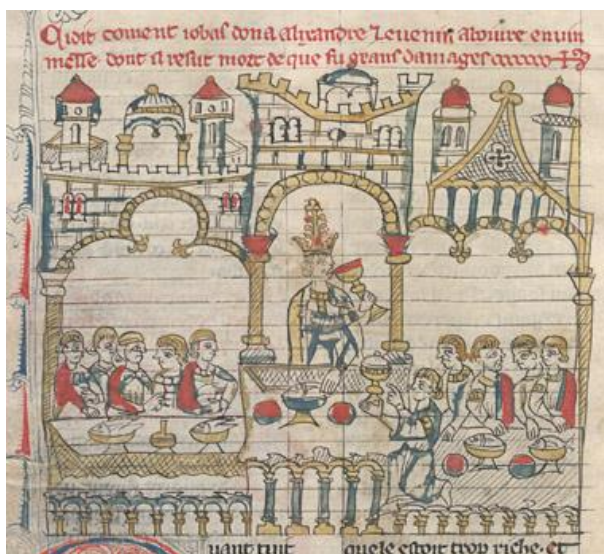 Ci dit coment iobas dona alixandre le uenin a boiure en uin
messe dont il resut mort de que fu grans damages
uant tuit quele estoit trop riche. et